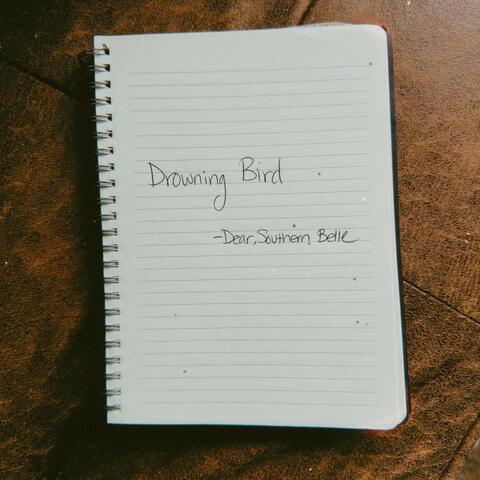 Drowning Bird
-Dear, Southern Belle